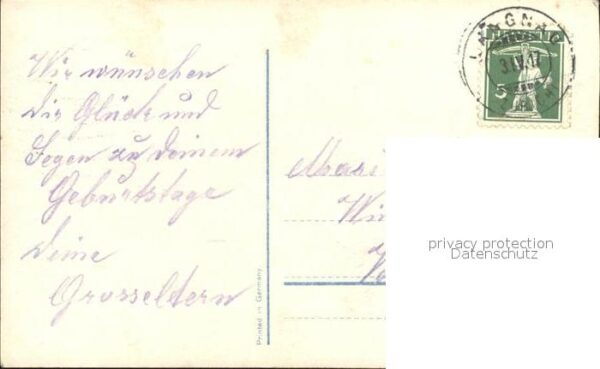 Wir wünschen
Dir Glück und
Segen zu Deinem
Geburtstage
Deine
Grosseltern
Printed in Germany
LANGNAU
3.IV.17
5
privacy protection
Datenschutz